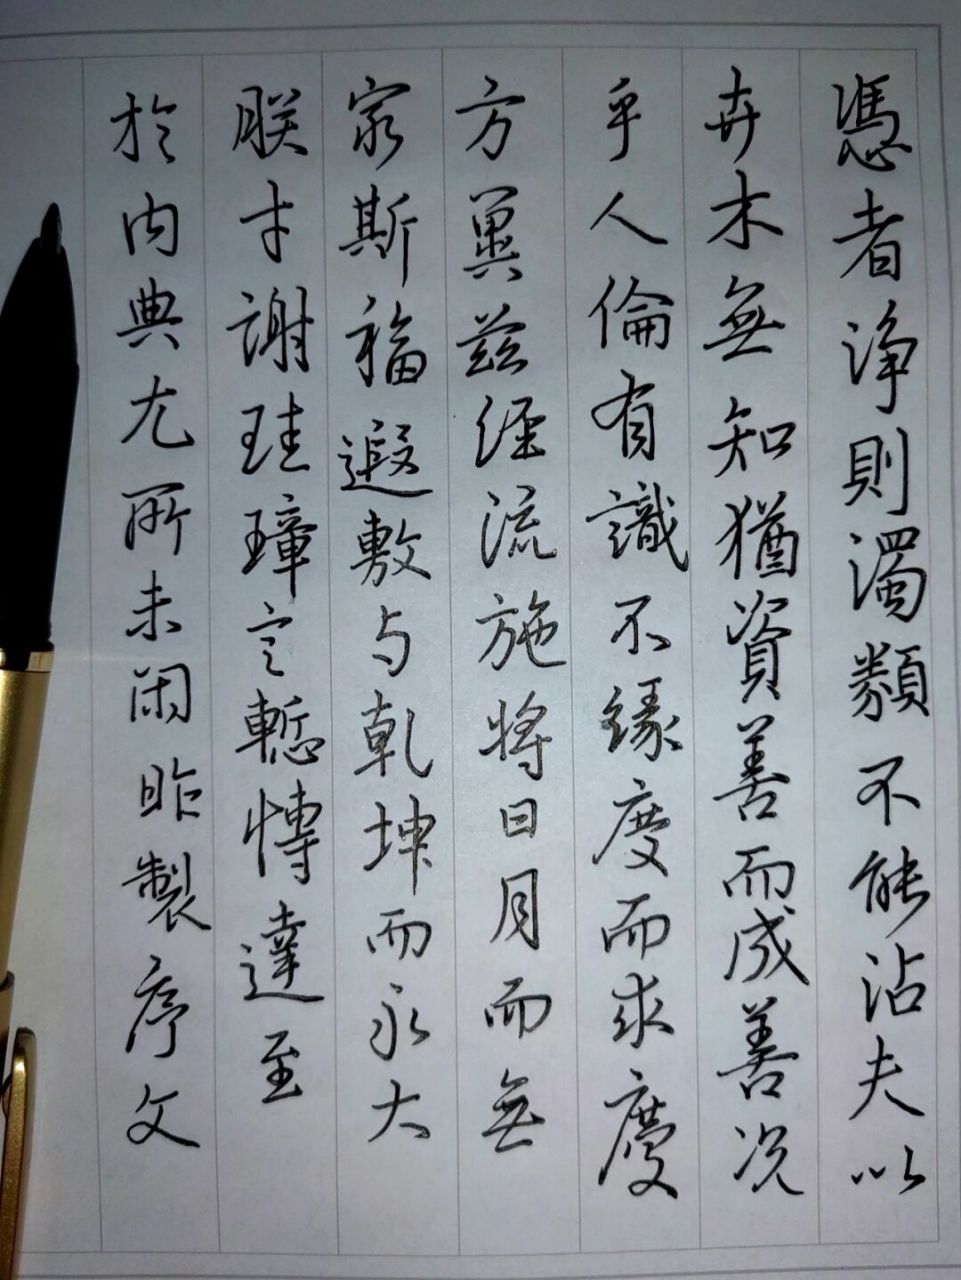 憑者淨則濁類不能沾夫以
卉木無知猶資善而成善況
乎人倫有識不緣慶而求慶
方冀茲經流施將日月而無
窮斯福遐敷与乾坤而永大
朕才謝珪璋言慙博達至
於内典尤所未閑昨製序文